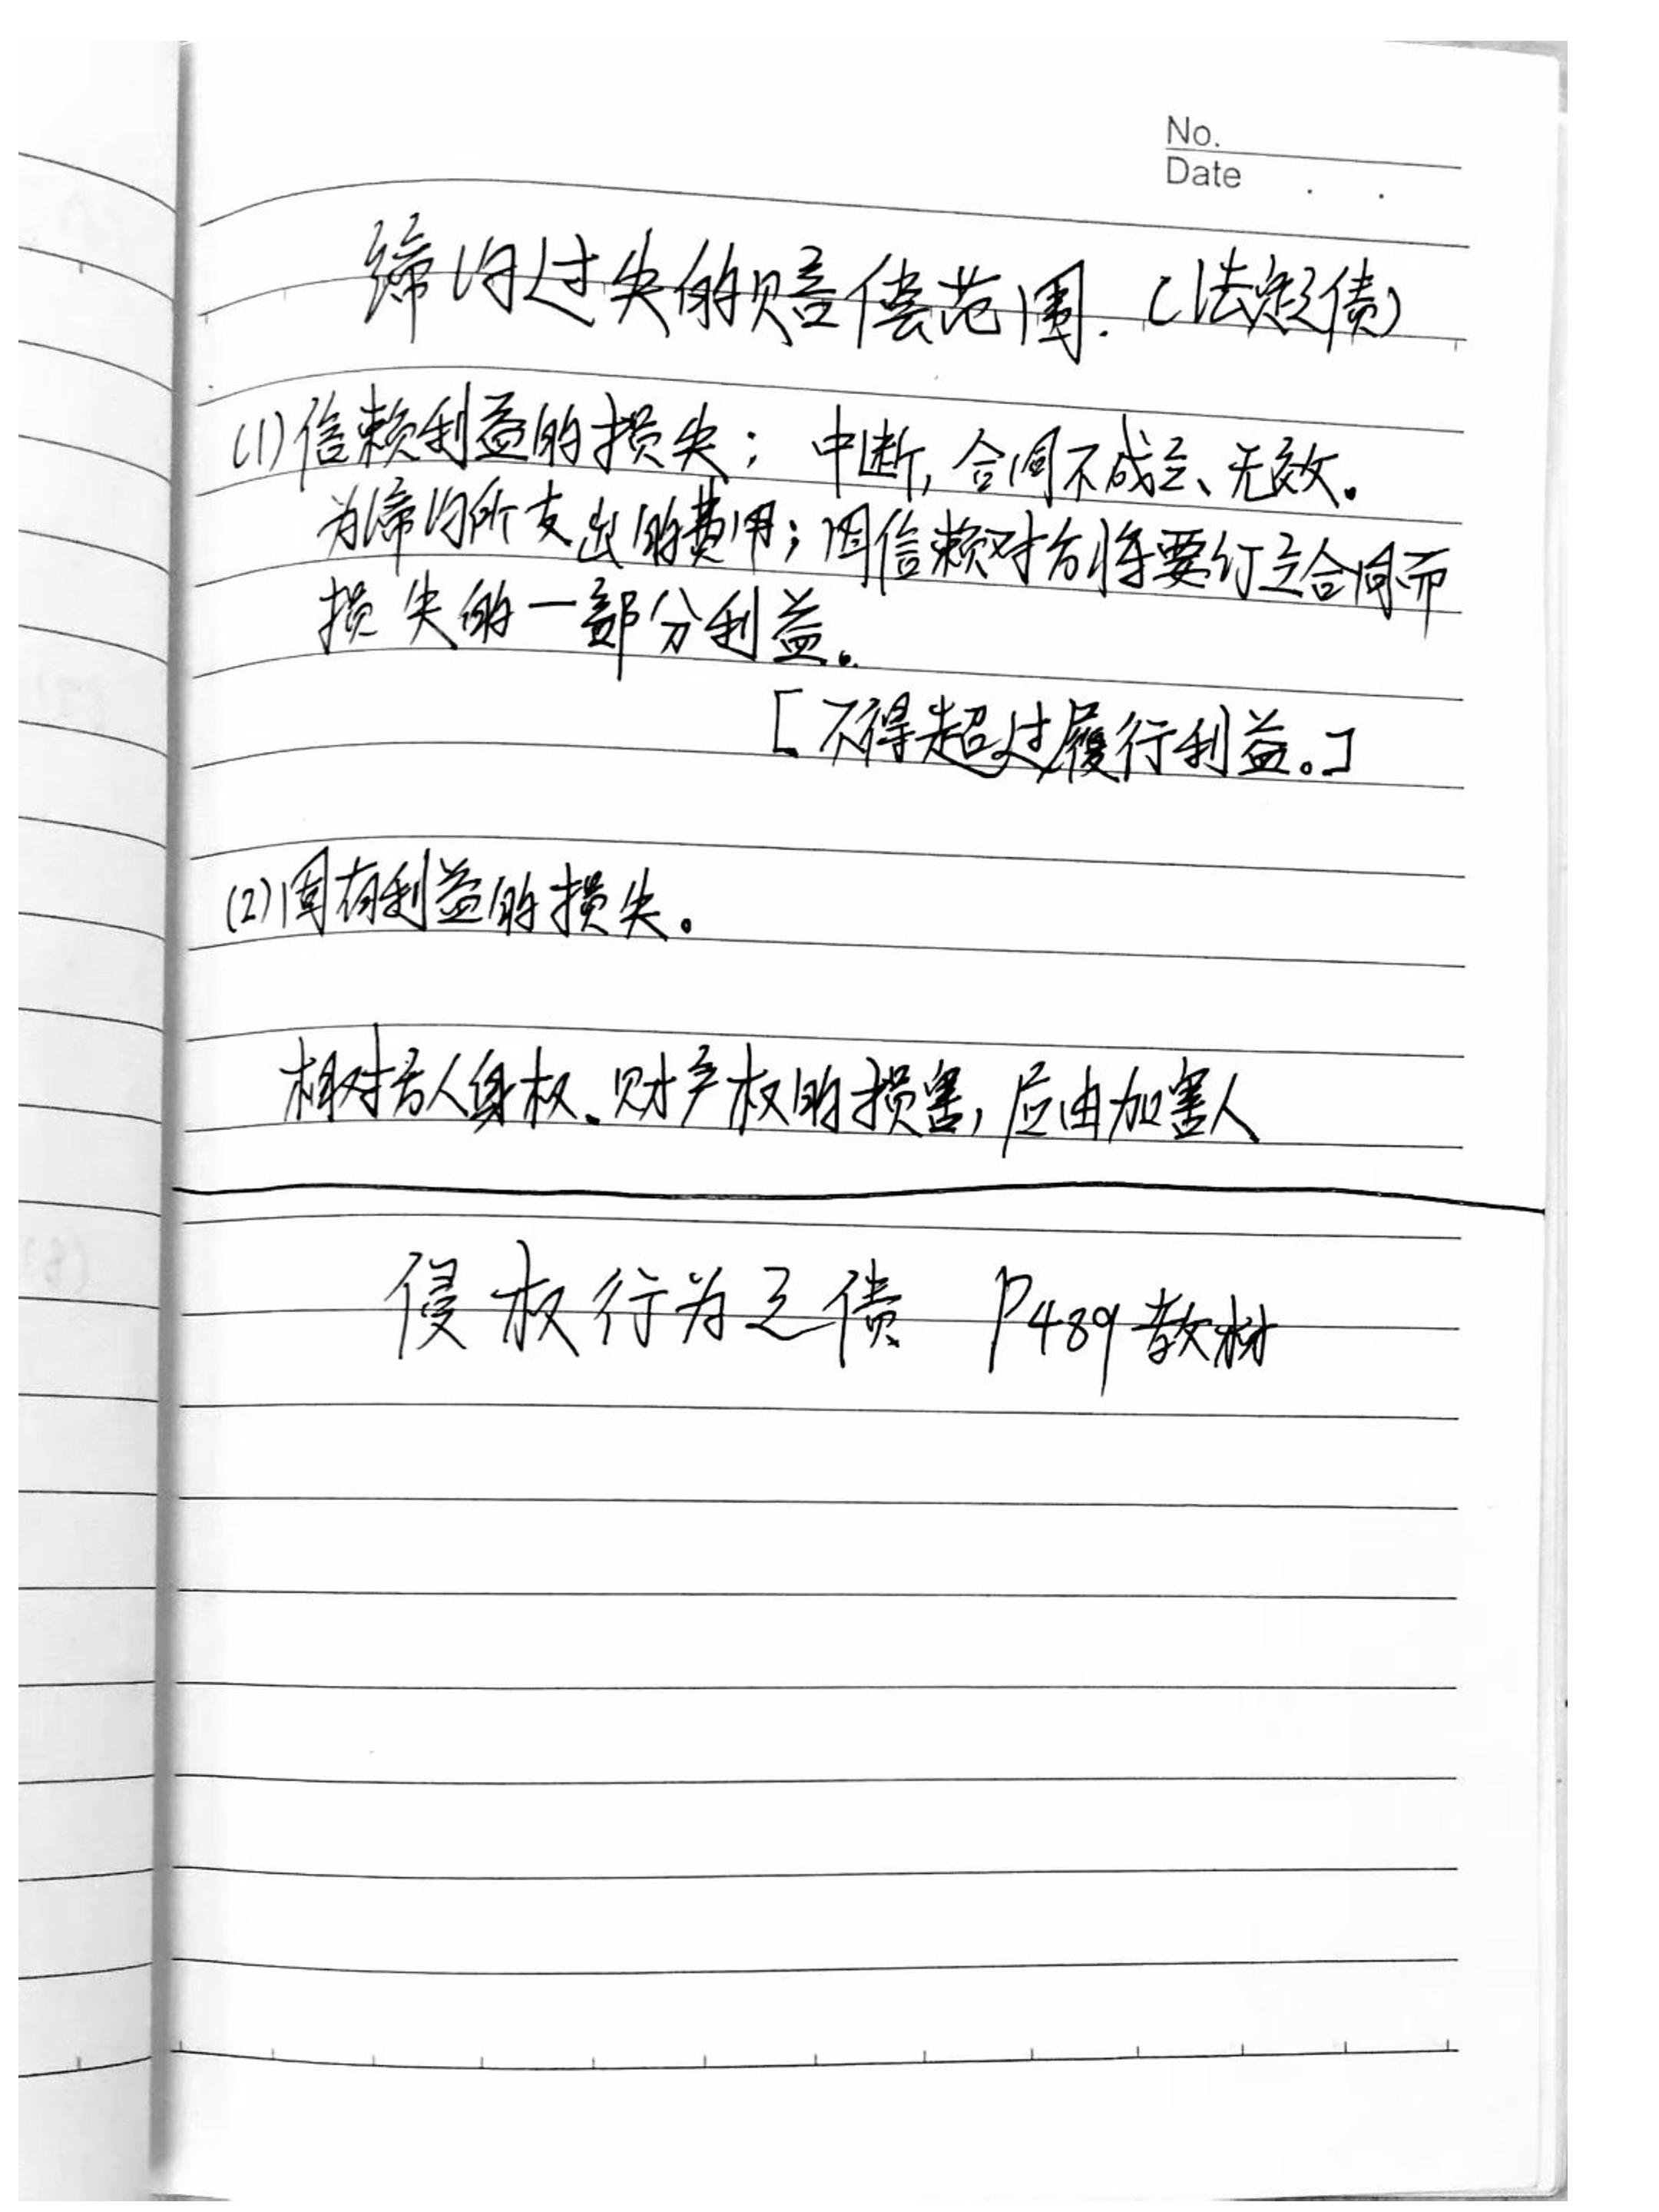 No.
Date . .
缔约过失的赔偿范围.(法定债)
(1)信赖利益的损失;中断,合同不成立、无效。
为缔约所支出的费用;因信赖对方将要订立合同而
损失的一部分利益。
[不得超过履行利益。]
(2)固有利益的损失。
相对方人身权、财产权的损害,应由加害人
侵权行为之债 P489教材